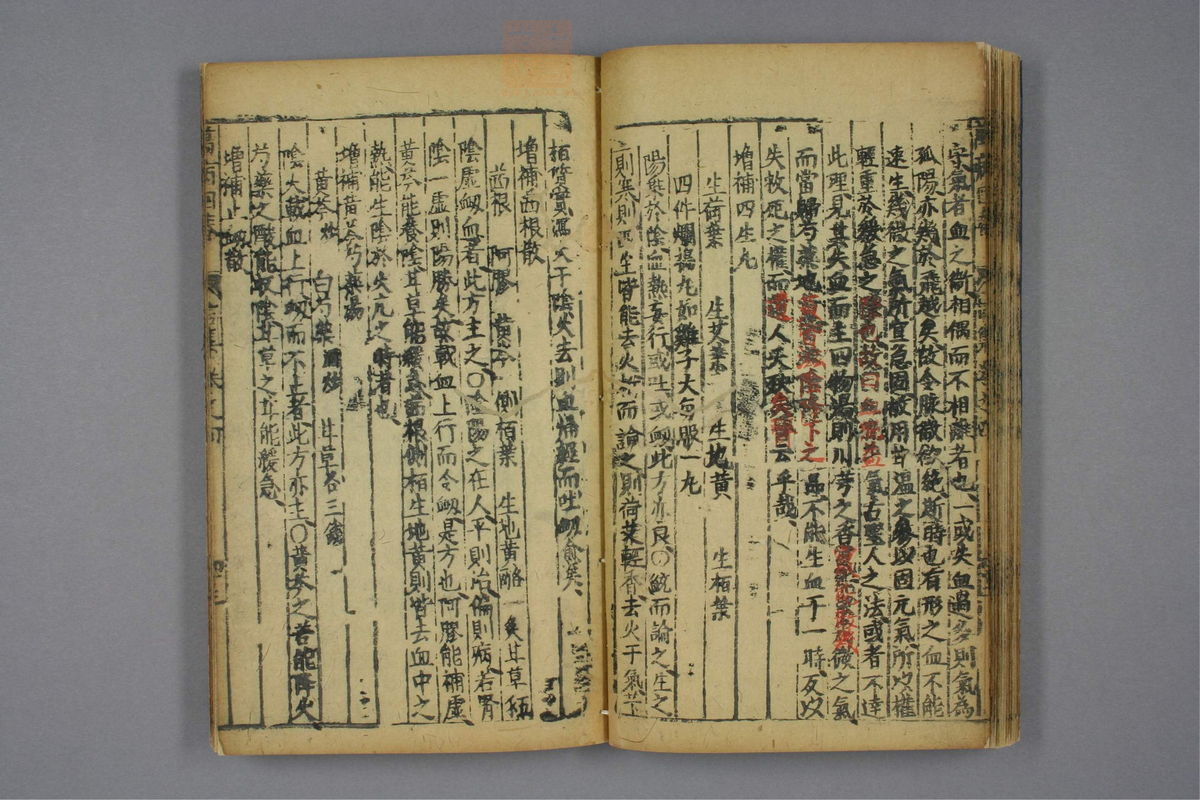 守氣者血之衛相偶而不相離者也一或失血過多則氣為
孤陽亦幾於飛越矣故令脉微欲絶斯時也有形之血不能
速生幾微之氣所宜急固故用甘温之參以固元氣所以權
輕重於緩急之際也故曰血脫益氣古聖人之法或者不達
此理見其失血而主四物湯則川芎之香竄能散幾微之氣
而當歸芍藥地黃皆滋陰降下之品不能生血于一時反以
失救死之權而遺人夭殃矣醫云乎哉
增補四生丸
生荷葉 生艾葉 生地黃 生栢葉
四件爛搗丸如雞子大每服一丸
陽盛於陰血熱妄行或吐或衂此方亦良○統而論之生之
則寒則四生皆能去火析而論之則荷葉輕香去火于氣生
栢質實濕去于陰火去則血歸經而吐衂愈矣
增補茜根散
茜根 阿膠 黃芩 側栢葉 生地黃酪 炙甘草
陰虛衂血者此方主之○陰陽之在人平則治偏則病若腎
陰一虛則陽勝矣故載血上行而令衂是方也阿膠能補虛
黃芩能養陰甘草能緩急茜根側栢生地黃則皆去血中之
熱能生陰於火亢之時者也
增補黃芩芍藥湯
黃芩 白芍藥 甘草各三錢
陰火載血上行衂而不止者此方亦主○黃芩之苦能降火
芍藥之酸能收陰甘草之甘能緩急
增補止衂散